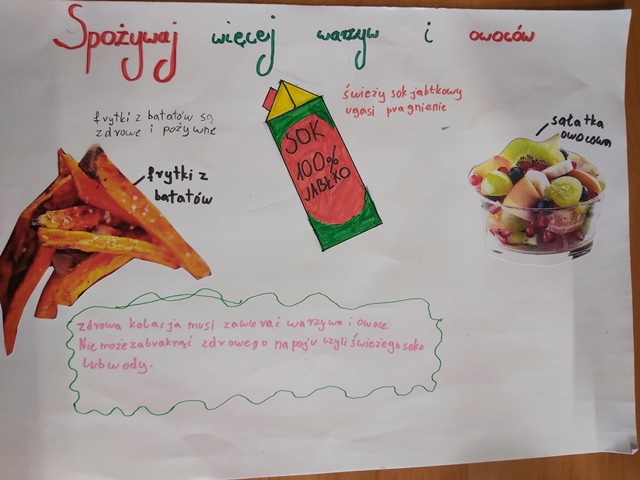 Spożywaj więcej warzyw i owoców
frytki z batatów są
zdrowe i pożywne
świeży sok jabłkowy
ugasi pragnienie
SOK
100%
JABŁKO
sałatka
owocowa
frytki z
batatów
zdrowa kolacja musi zawierać warzywa i owoce.
Nie może zabraknąć zdrowego napoju czyli świeżego soku
lub wody.